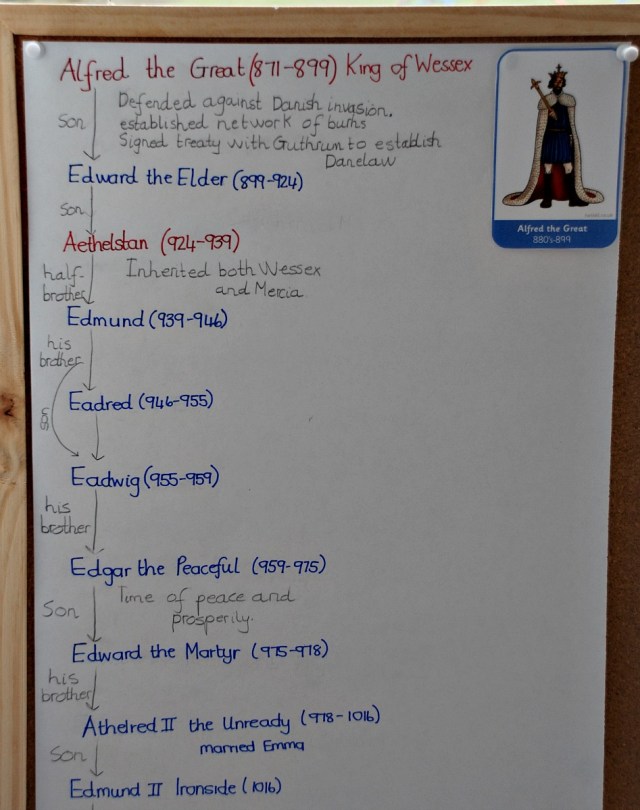 Alfred the Great (871-899) King of Wessex
Son
Defended against Danish invasion.
established network of burhs
Signed treaty with Guthrun to establish
Danelaw
Edward the Elder (899-924)
son
Aethelstan (924-939)
half-
brother
Inherited both Wessex
and Mercia
Edmund (939-946)
his
brother
son
Eadred (946-955)
Eadwig (955-959)
his
brother
Edgar the Peaceful (959-975)
Son
Time of peace and
prosperity.
Edward the Martyr (975-978)
his
brother
Athelred II the Unready (978-1016)
married Emma
Son
Edmund II Ironside (1016)
Alfred the Great
880's-899